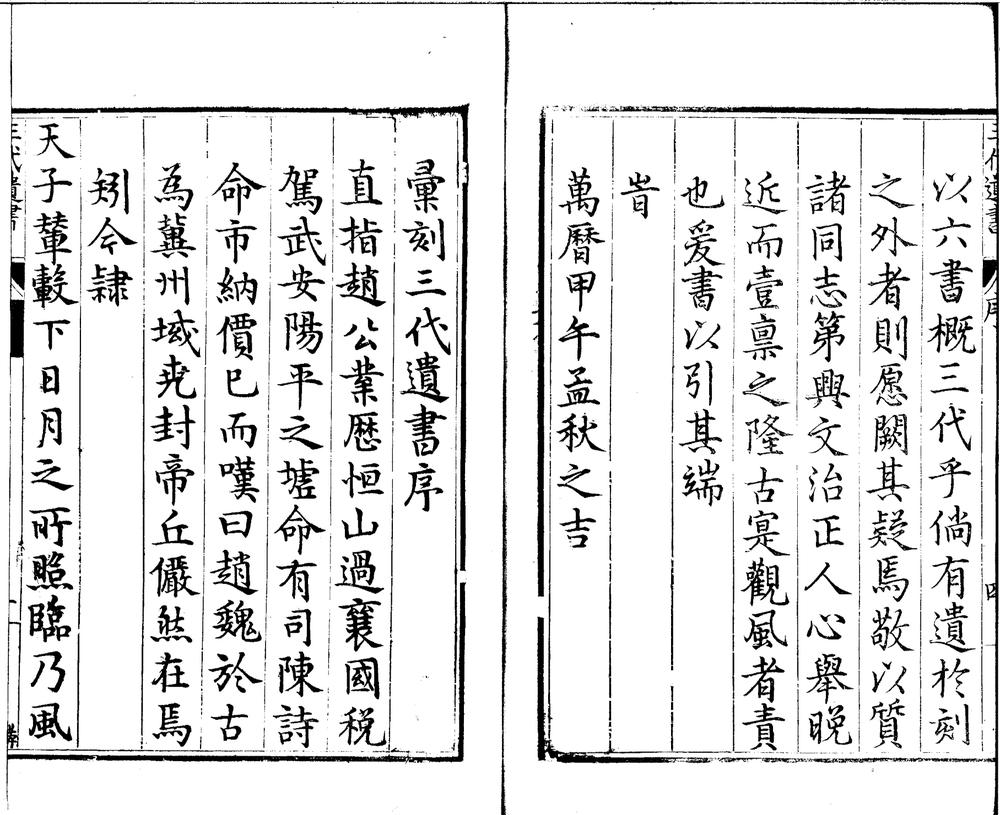 以六書概三代乎倘有遺於刻
之外者則愿闕其疑焉敬以質
諸同志第興文治正人心舉晚
近而壹稟之隆古寔觀風者責
也爰書以引其端
旹
萬曆甲午孟秋之吉
彙刻三代遺書序
直指趙公業歷恒山過襄國稅
駕武安陽平之墟命有司陳詩
命市納價已而嘆曰趙魏於古
為冀州域尭封帝丘儼然在焉
矧今隷
天子輦轂下日月之所照臨乃風
三代遺書